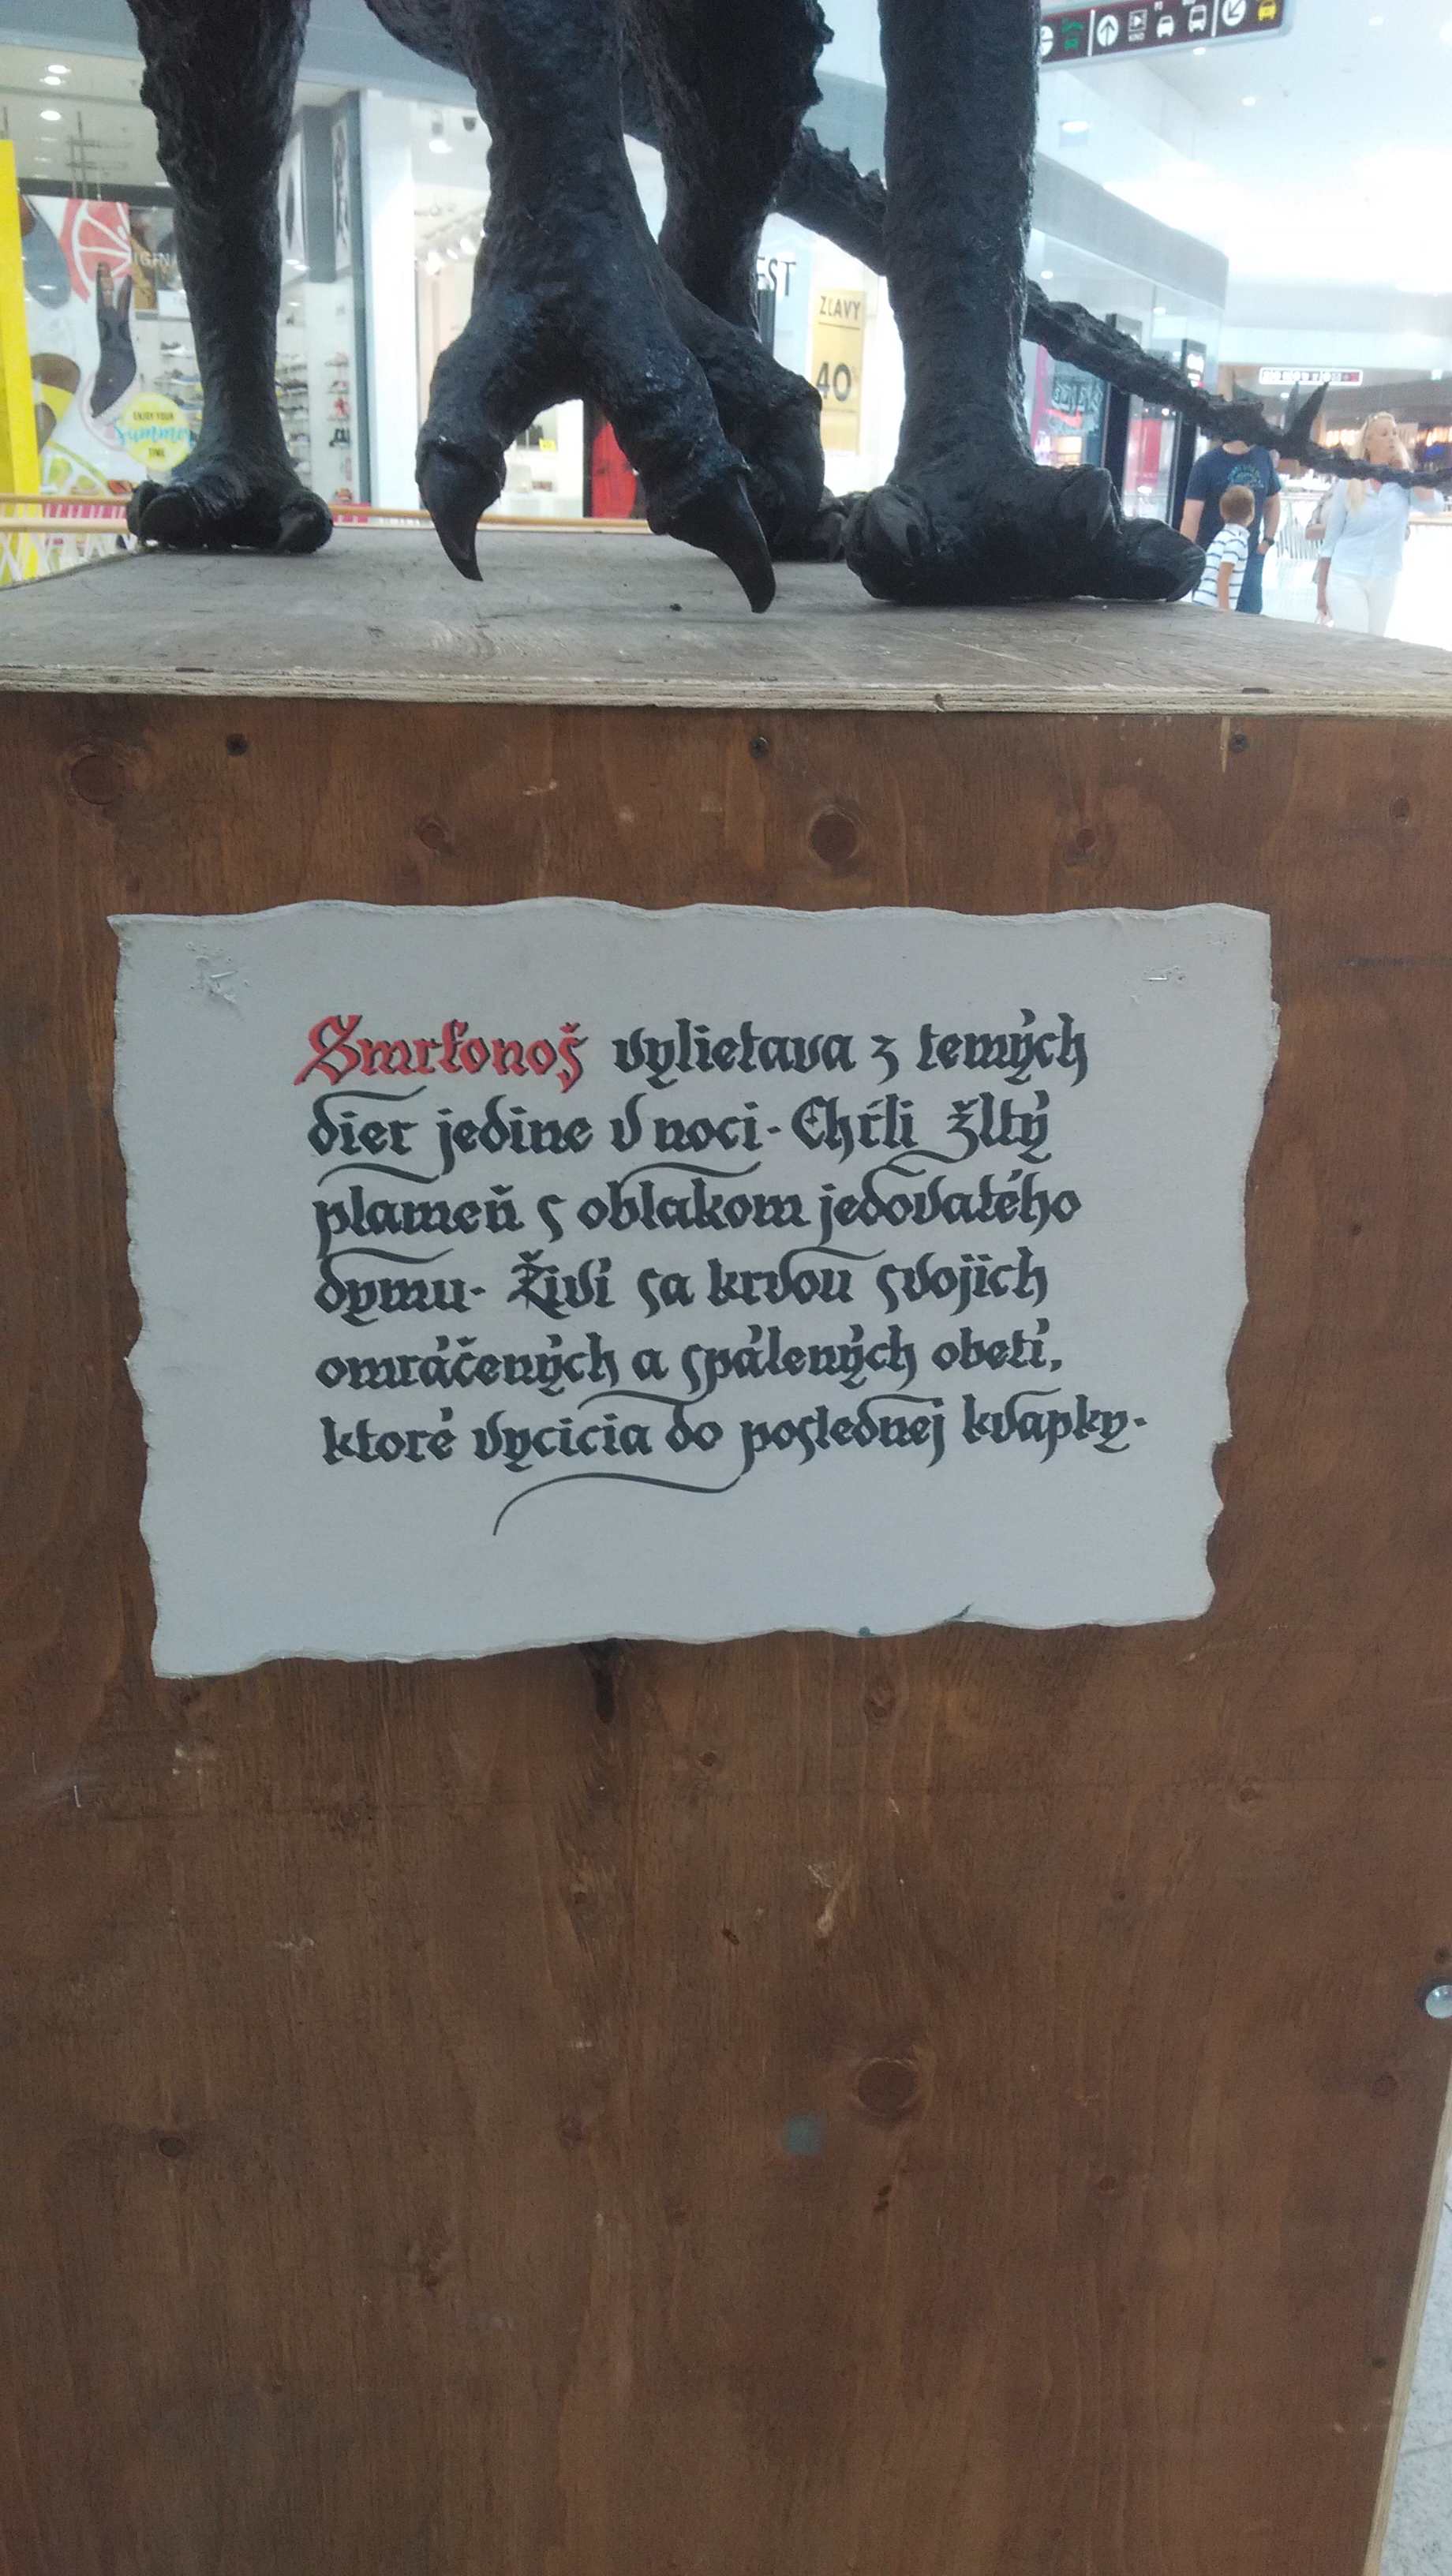 KINO
EST
ZĽAVY
40
ENJOY YOUR
Summer
TIME
Smrťonoš vylietava z temných
dier jedine v noci. Chŕli žltý
plameň s oblakom jedovatého
dymu. Živí sa krvou svojich
omráčených a spálených obetí,
ktoré vycicia do poslednej kvapky.